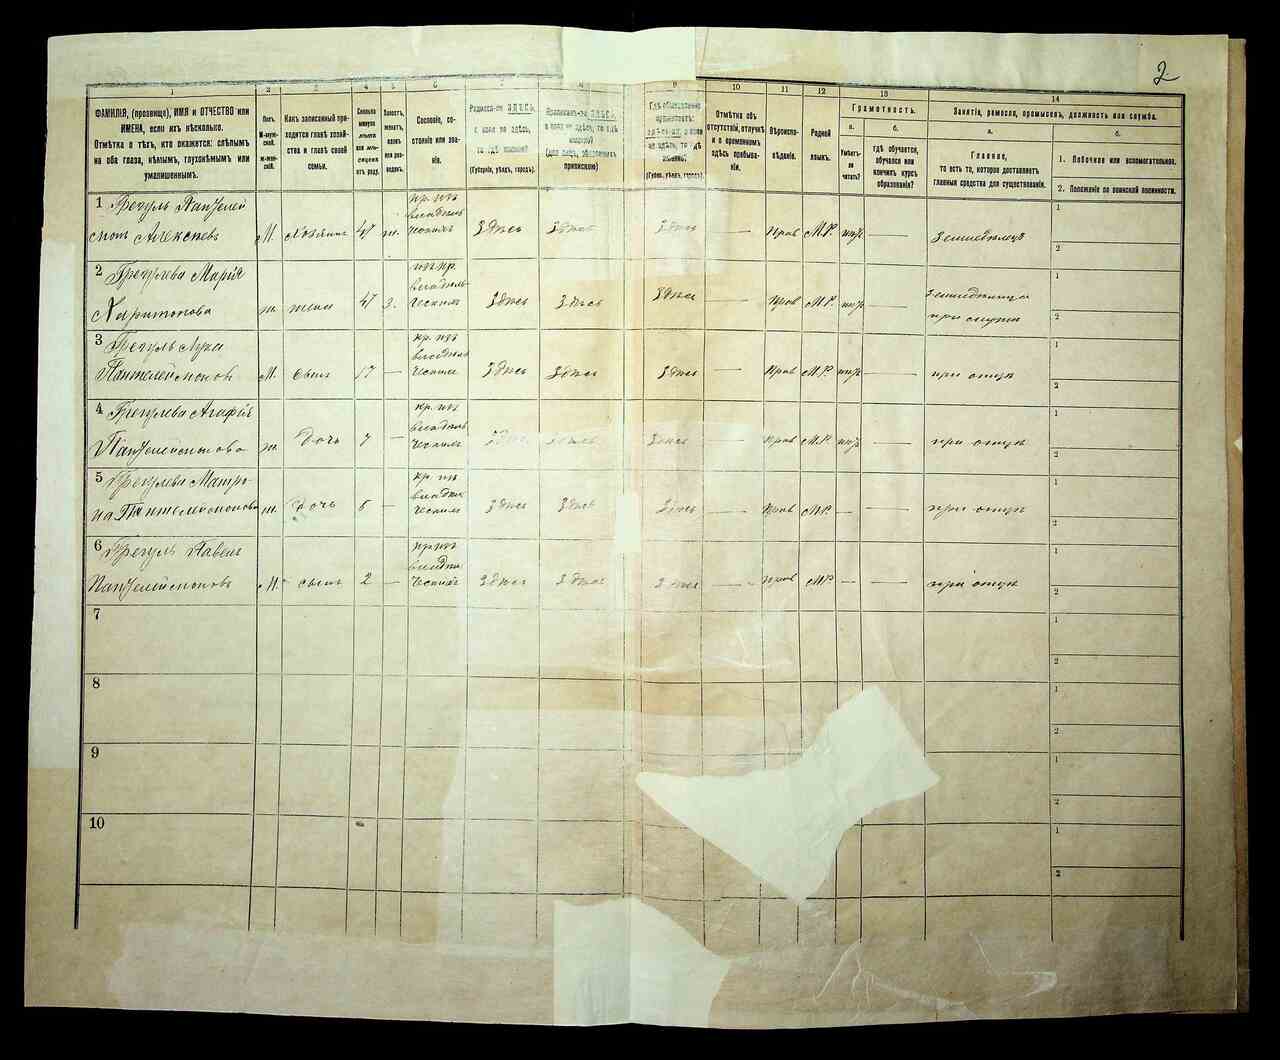 2.
1
ФАМИЛІЯ, (прозвище), ИМЯ и ОТЧЕСТВО или
ИМЕНА, если ихъ нѣсколько.
Отмѣтка о тѣхъ, кто окажется: слѣпымъ
на оба глаза, нѣмымъ, глухонѣмымъ или
умалишеннымъ.
2
Полъ.
М-мужской.
ж-женскій.
3
Какъ записанный приходится
главѣ хозяйства
и главѣ своей
семьи.
4
Сколько
минуло
лѣтъ
или мѣсяцевъ
отъ роду.
5
Холостъ,
женатъ,
вдовъ
или разведенъ.
6
Сословіе, состояніе
или званіе.
Родился-ли ЗДѢСЬ,
а если не здѣсь,
то гдѣ именно?
(Губернія, уѣздъ, городъ).
8
Приписанъ-ли ЗДѢСЬ,
а если не здѣсь, то гдѣ
именно?
(для лицъ, обязанныхъ
припискою)
9
Гдѣ обыкновенно
проживаетъ:
здѣсь-ли, а если
не здѣсь, то гдѣ
именно?
(Губ., уѣздъ, городъ).
10
Отмѣтка объ
отсутствіи, отлучкѣ
и о временномъ
здѣсь пребываніи.
11
Вѣроисповѣданіе.
12
Родной
языкъ.
13
Грамотность.
а.
Умѣетъ-ли
читать?
б.
гдѣ обучается,
обучался или
кончилъ курсъ
образованія?
14
Занятіе, ремесло, промыселъ, должность или служба.
а.
Главное,
то есть то, которое доставляетъ
главныя средства для существованія.
б.
1. Побочное или вспомогательное.
2. Положеніе по воинской повинности.
1 Грегуль Пантелеймонъ Алексѣевъ М. Хозяинъ 47 ж. кр. изъ владѣльческихъ Здѣсь Здѣсь Здѣсь — Прав М.Р. — Земледѣлецъ 1 2
2 Грегулева Марія Харитонова ж. жена 47 З. изъ кр. владѣльческихъ Здѣсь Здѣсь Здѣсь — Прав М.Р. — 1 2
3 Грегуль Лука Пантелеймоновъ М. сынъ 17 — кр. изъ владѣльческихъ Здѣсь Здѣсь Здѣсь — Прав М.Р. — при отцѣ 1 2
4 Грегулева Агафія Пантелеймонова ж. дочь — кр. изъ владѣльческихъ Здѣсь Здѣсь Здѣсь — Прав М.Р. — при отцѣ 1 2
5 Грегулева Матрона Пантелеймонова ж. дочь — кр. изъ Здѣсь Здѣсь Здѣсь — Прав М.Р. — при отцѣ 1 2
6 Грегуль Павелъ Пантелеймоновъ М. сынъ 2 — кр. изъ Здѣсь Здѣсь Здѣсь — Прав М.Р. — — при отцѣ 1 2
7 1 2
8 1 2
9 1 2
10 1 2